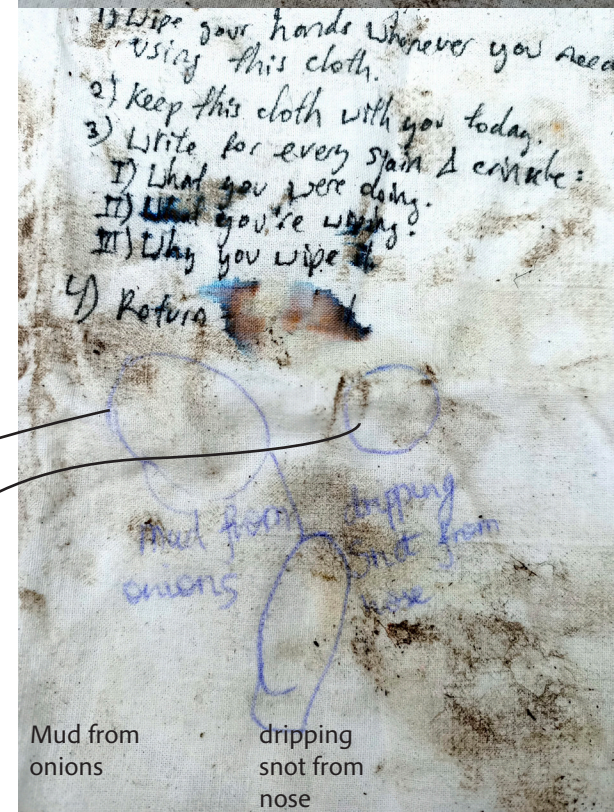 1) Wipe your hands whenever you need
using this cloth.
2) Keep this cloth with you today.
3) Write for every stain &
I) What you were doing.
II) What you're wiping.
III) Why you wipe it
4) Return
Mud from
onions
dripping
snot from
nose
Mud from
onions
dripping
snot from
nose